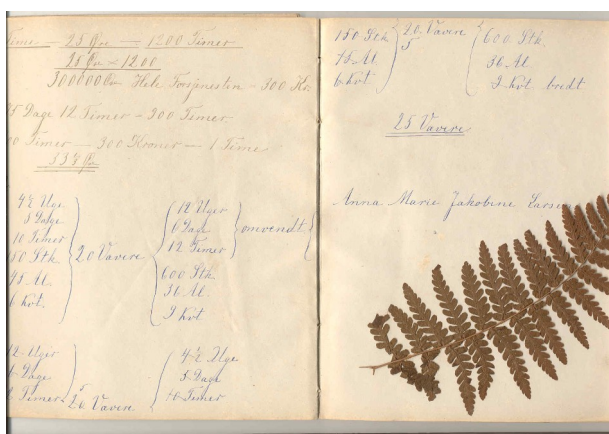 Time — 25 Øre — 1200 Timer
25 Øre × 1200
30000 Øre Hele Fortjenesten - 300 Kr.
25 Dage 12 Timer - 300 Timer
Timer — 300 Kroner — 1 Time
33 Øre
Uge
Dage
10 Timer
Stk.
Al.
Kvt.
20 Vavere
12 Uger
6 Dage
12 Timer
600 Stk.
36 Al.
9 Kvt
omvendt
12 Uger
Dage
Timer
20 Vavere
5
Uge
5 Dage
10 Timer
150 Stk
75 Al.
6 Kvt.
20 Vavere
5
600 Stk.
36 Al.
9 Kvt. bredt
25 Vavere
Anna Marie Jakobine Larse